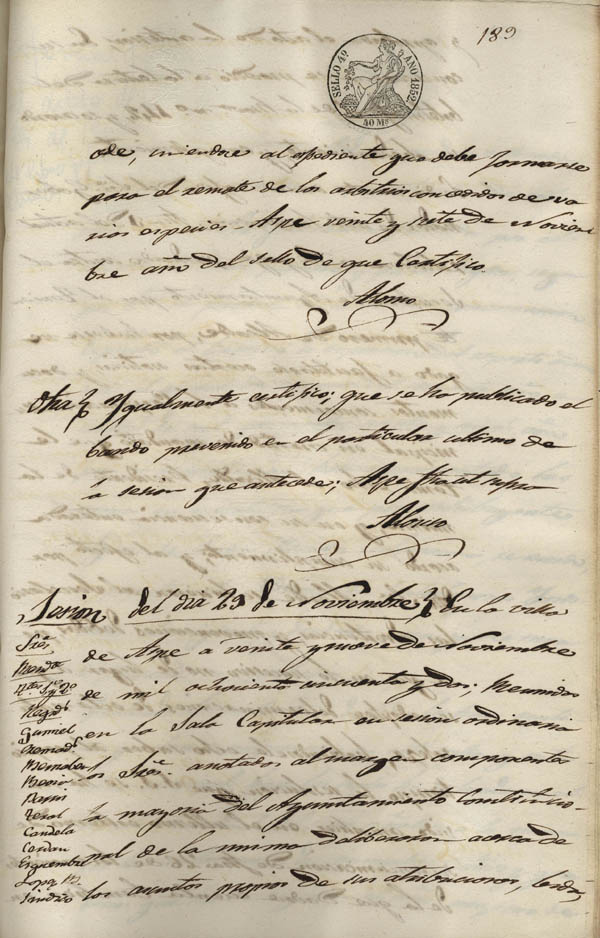 189
SELLO 4º AÑO 1852
40 Ms
ode, uniendose al espediente que debe formarse
para el remate de los arbitrios concedidos de va
rios especies. Aspe veinte y siete de Noviem
bre año del sello de que Certifico.
Alonso
Otra } Ygualmente certifico; que se ha publicado el
bando prevenido en el particular ultimo de
la sesion que antecede; Aspe fha ut supra
Alonso
Sesion del dia 29 de Noviembre } En la villa
de Aspe a veinte y nueve de Noviembre
de mil ochociento cincuenta y dos; Reunidos
en la Sala Capitular en sesion ordinaria
los Sres. anotados al margen componente
la mayoria del Ayuntamiento Constitucio-
nal de la misma deliberaron acerca de
los asuntos propios de sus atribuciones, leida,
Sres
Ttes 1º y 2º
Regid.s
Gumiel
Cremad.s
Bernabeu
Pavia
Terol
Candela
Cerdan
Esquembre
Lopez
Sindico